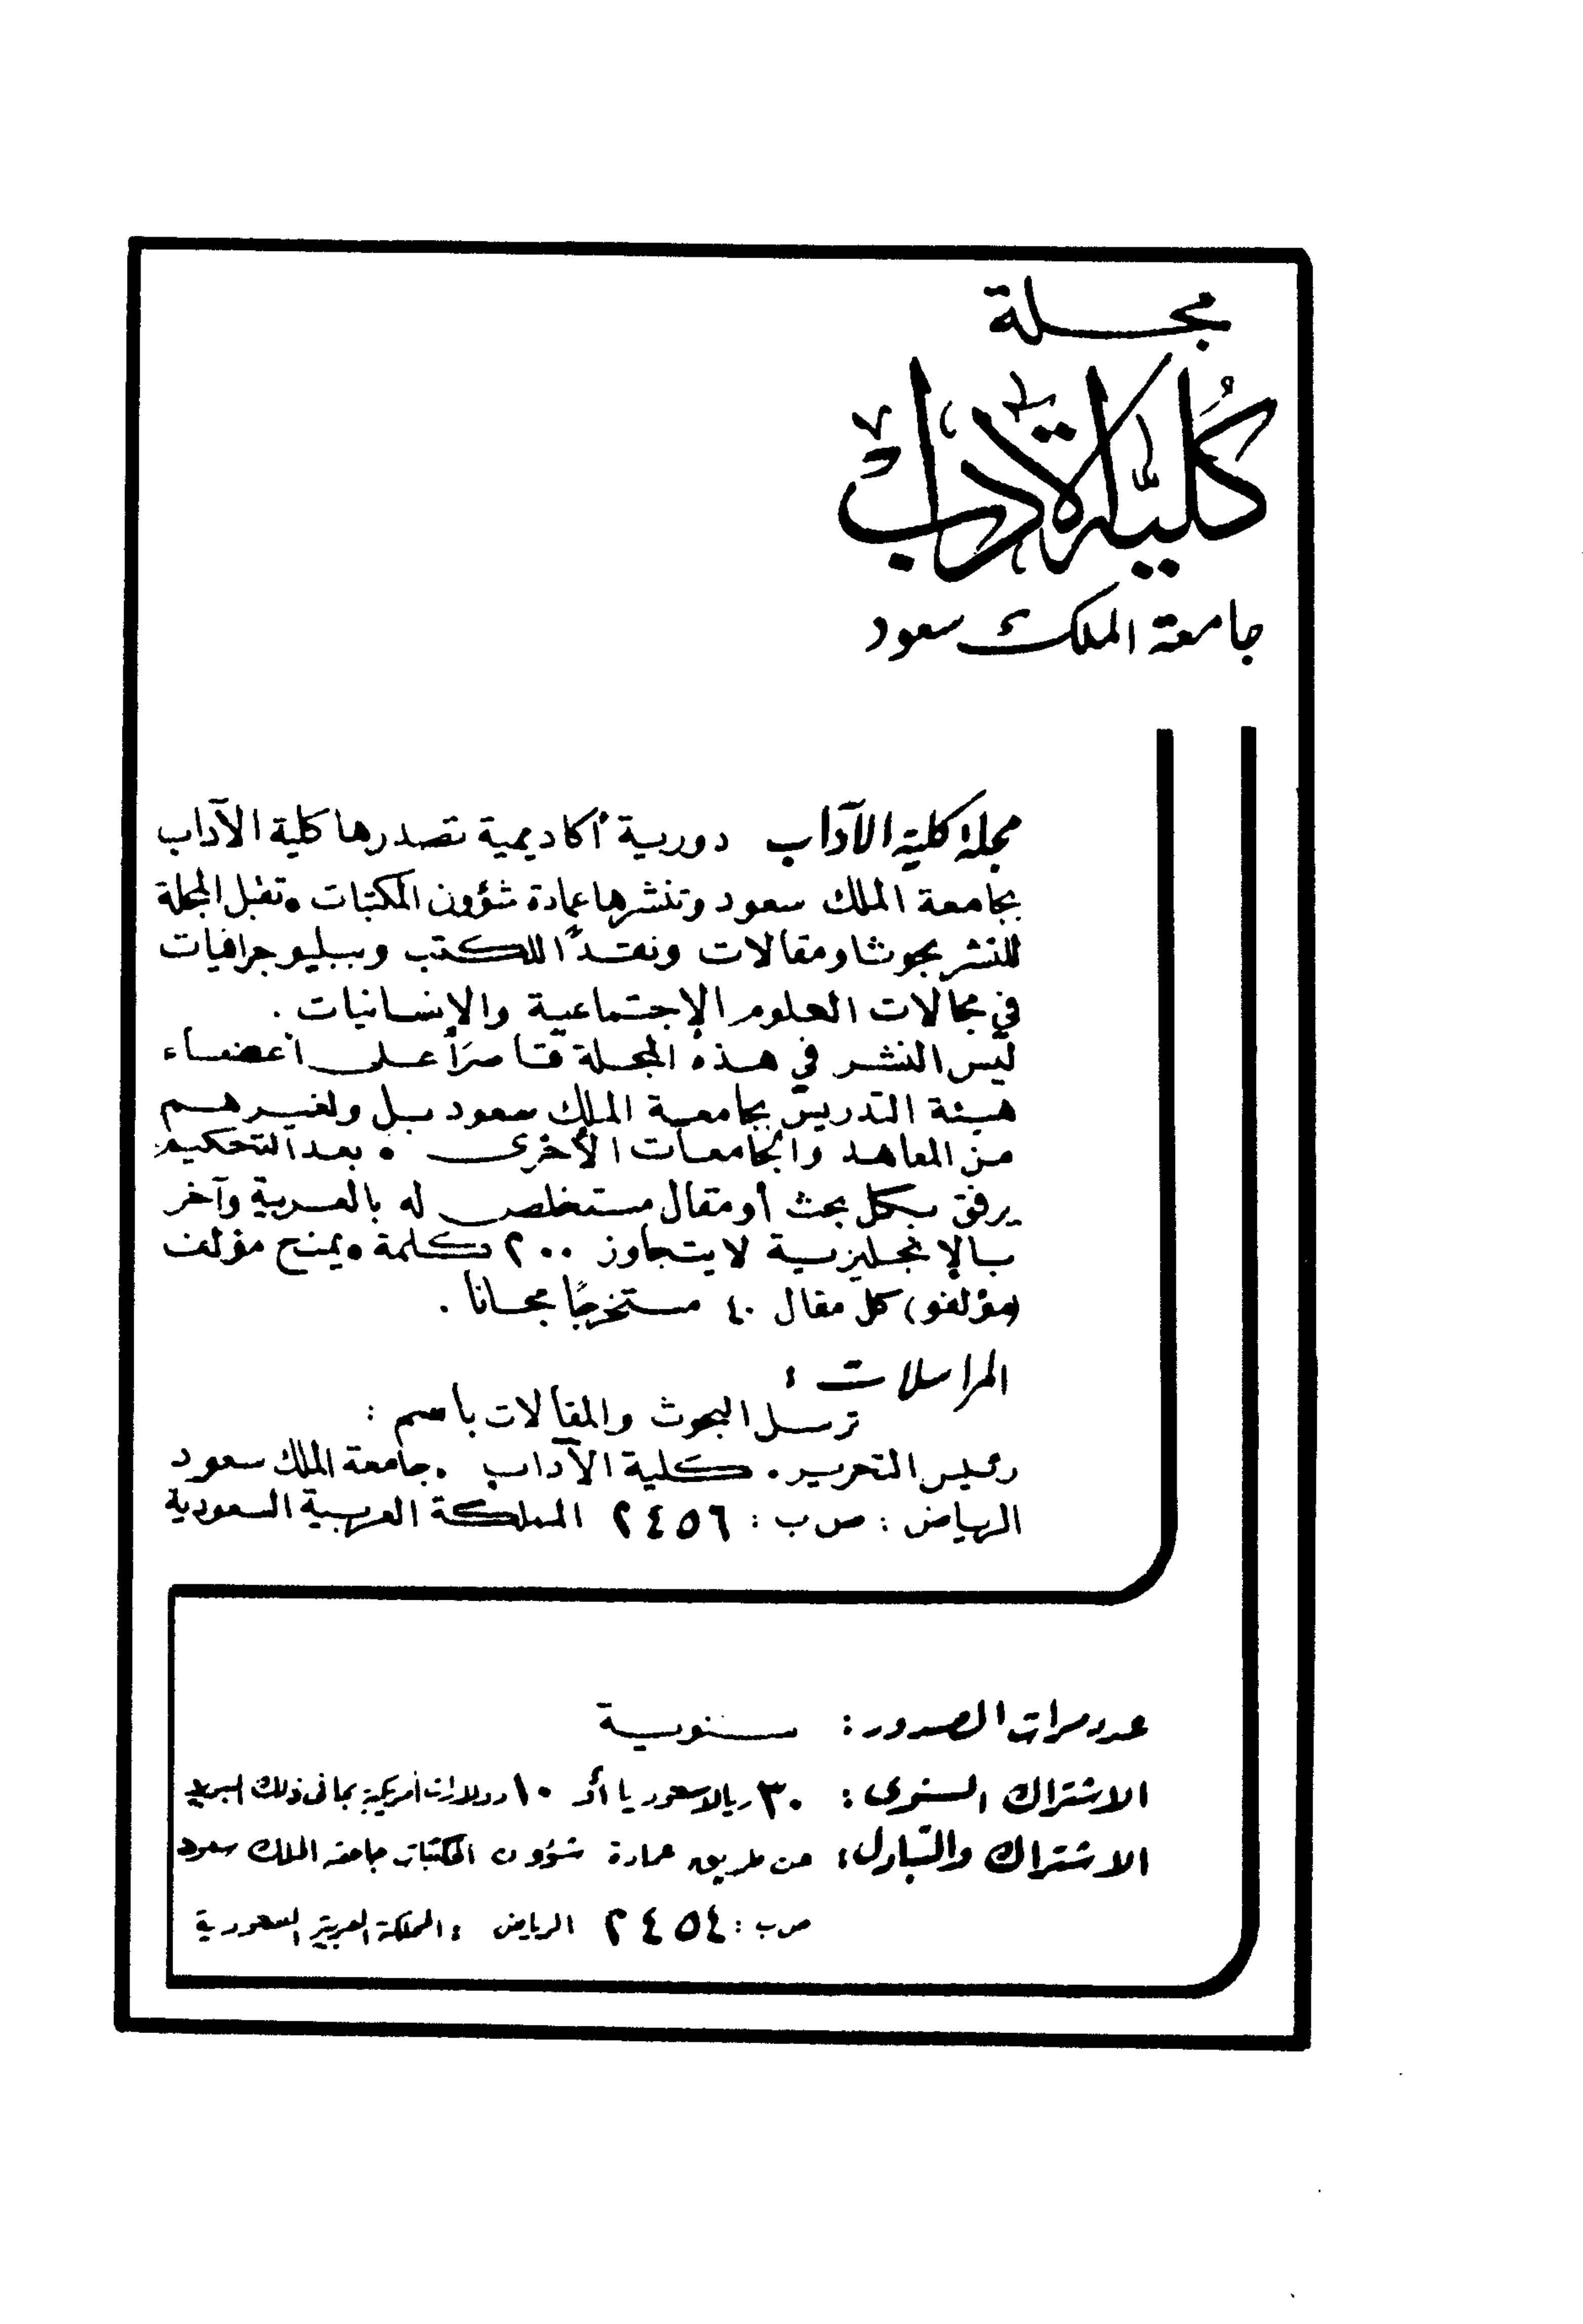 مجلة
كلية الآداب
جامعة الملك سعود
مجلة كلية الآداب دورية أكاديمية تصدرها كلية الآداب
بجامعة الملك سعود وتنشرها عمادة شؤون المكتبات . تقبل المجلة
للنشر بحوثا ومقالات ونقدًا للكتب وببليوجرافيات
في مجالات العلوم الإجتماعية والإنسانيات .
ليس النشر في هذه المجلة قاصرًا على أعضاء
هيئة التدريس بجامعة الملك سعود بل ولغيرهم
من المعاهد والجامعات الأخرى . بعد التحكيم
يرفق بكل بحث أو مقال مستخلص له بالعربية وآخر
بالإنجليزية لا يتجاوز ٢٠٠ كلمة . يمنح مؤلف
(مؤلفو) كل مقال ٤٠ مستخرجًا مجانا .
المراسلات :
ترسل البحوث والمقالات باسم :
رئيس التحرير . كلية الآداب . جامعة الملك سعود
الرياض : ص ب : ٢٤٥٦ المملكة العربية السعودية
عدد مرات الصدور : سنوية
الاشتراك السنوى : ٣٠ ريالا سعوديا أو ١٠ دولارات أمريكية بما فى ذلك البريد
الاشتراك والتبادل : عن طريق عمادة شؤون المكتبات جامعة الملك سعود
ص ب : ٢٤٥٤ الرياض : المملكة العربية السعودية